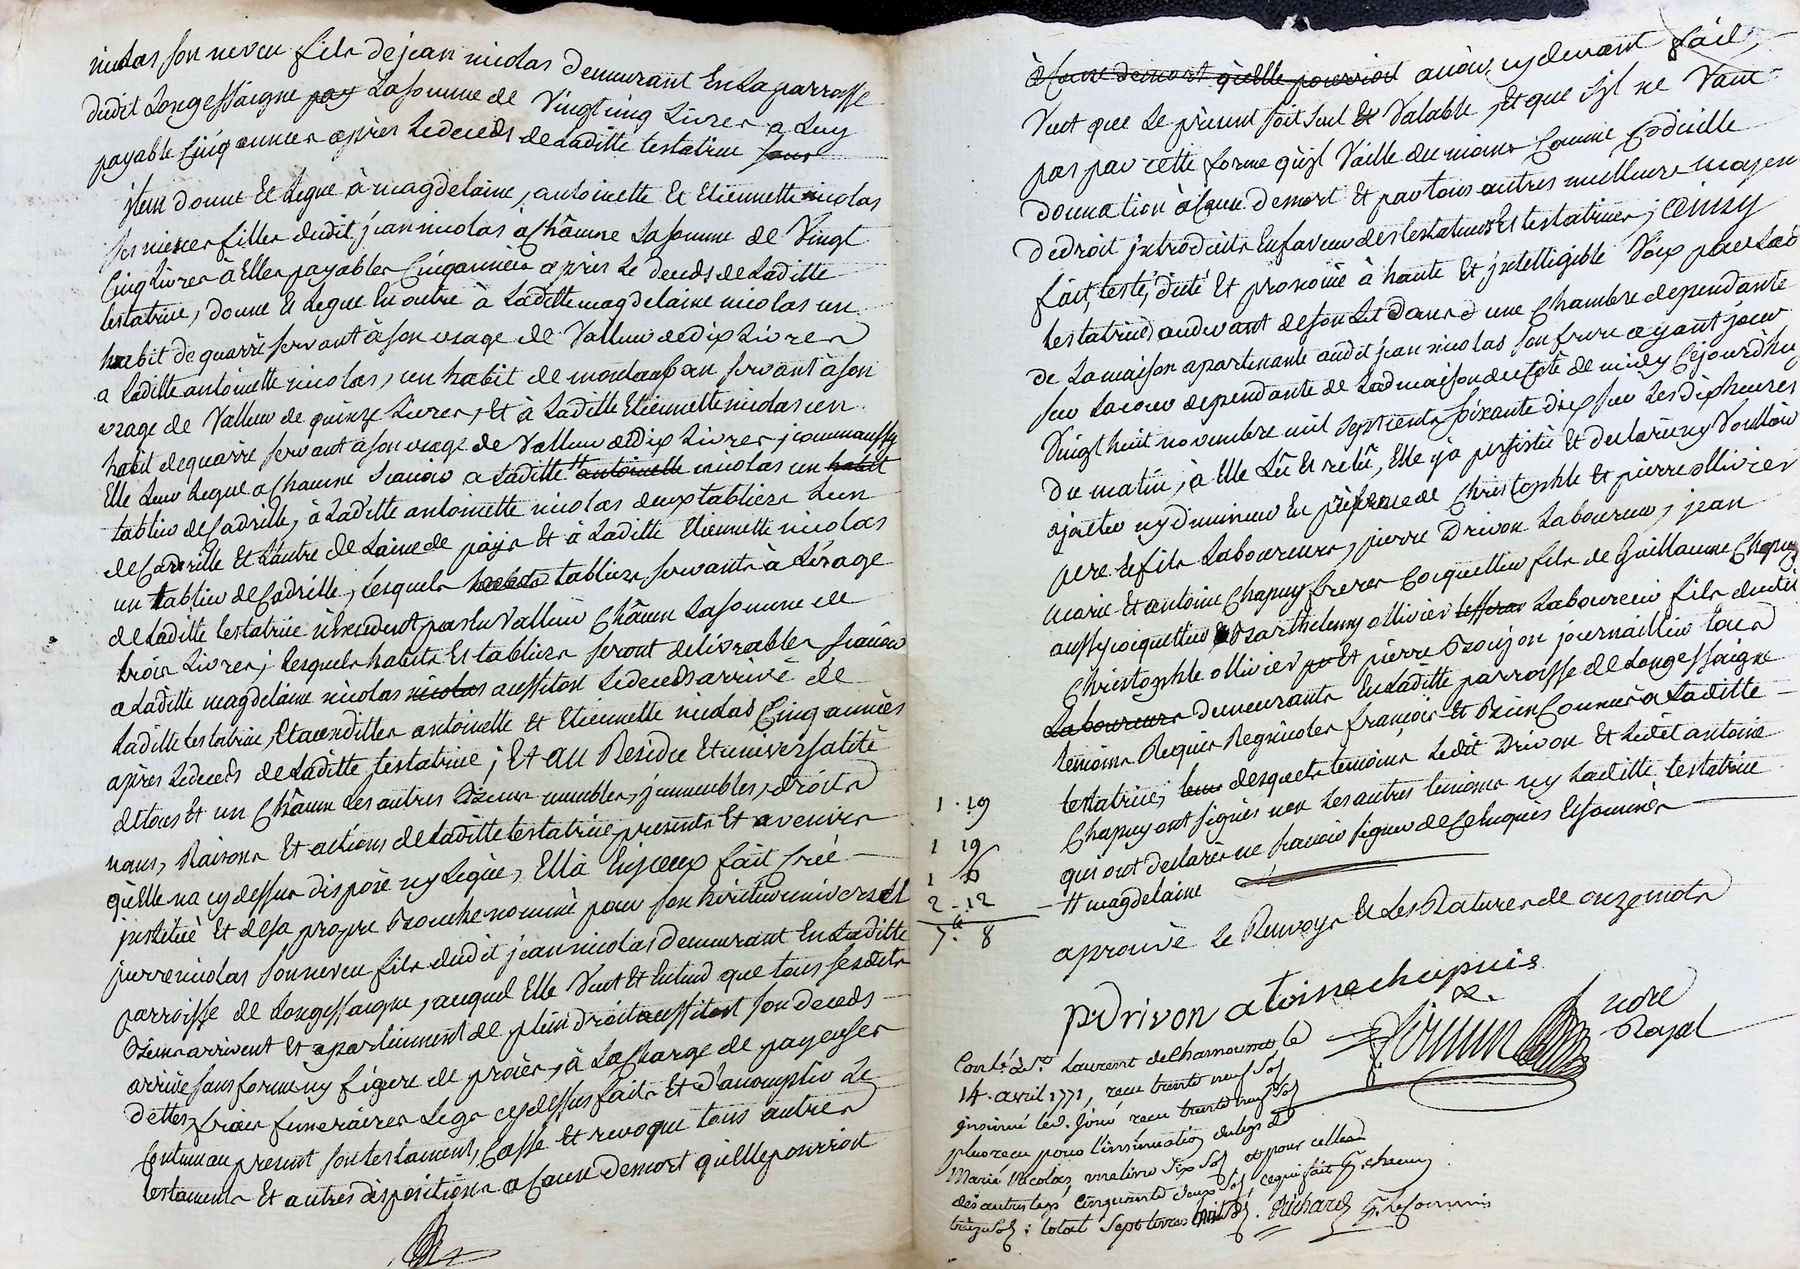 nicolas son neveu fils de jean nicolas demeurant En La parroisse
dudit Longessaigne pay La somme de Vingt cinq Livres a Luy
payable Cinq annees après Le deceds de Laditte testatrice sous
jtem donne Et Legue à magdelaine, antoinette Et Etiennette nicolas
ses nieces filles dudit jean nicolas à Châcune La somme de Vingt
Cinq Livres à Elles payables Cinq années après Le deceds de Laditte
testatrice, donne Et Legue En outre à Laditte magdelaine nicolas un
habit de quarré servant à son usage de Valleur de dix Livres
a Laditte antoinette nicolas, un habit de montauban servant à son
usage de Valleur de quinze Livres, Et à Laditte Etiennette nicolas un
habit de quarré servant à son usage de Valleur de dix Livres, comm'aussy
Elle Leur Legue a Chacune scavoir a Laditte # antoinette nicolas un habit
tablier de Cadrille, à Laditte antoinette nicolas deux tabliers Lun
de Cadrille Et Lautre de Laine de païs Et à Laditte Etiennette nicolas
un tablier de Cadrille, Lesquels habits tabliers servants à L'usage
de Laditte testatrice n'excedent pas En Valleur Châcun La somme de
trois Livres, Lesquels habits Et tabliers seront delivrables scavoir
a Laditte magdelaine nicolas nicolas aussitost Le deceds arrivé de
Laditte testatrice, Et auxdittes antoinette et Etiennette nicolas Cinq années
après Le deceds de Laditte testatrice; Et au Residu Et universalité
de tous Et un Châcun ses autres Biens meubles, jmmeubles, droits
noms, Raisons Et actions de Laditte testatrice presents Et avenirs
qu'Elle na cy dessus disposé ny Légué, Ell'a En jceux fait Créé
jnstitué Et de sa propre Bouche nommé pour son héritier universel
pierre nicolas son neveu fils dudit jean nicolas demeurant En Laditte
parroisse de Longessaigne, auquel Elle Veut Et Entend que tous sesdits
Biens arrivent Et apartiennent de plein droit aussitost son deceds
arrivé sans forme ny figure de procès, à La Charge de payer ses
dettes, frais funeraires Legs cy dessus faits Et d'accomplir Le
Contenu au present son testament, Casse Et revoque tous autres
testaments Et autres dispositions a Cause de mort qu'Elle pourroit
à Cause de mort qu'Elle pourroit avoir cy devant fait,
Veut que Le present soit seul Et Valable, Et que s'jl ne Vaut
pas par cette forme qu'jl Vaille du moins Comme Codicille
donnation à Cause de mort Et par tous autres meilleurs moyens
de droit jntroduits En faveur des testateurs Et testatrices, ainsy
fait, testé, dicté Et prononcé à haute Et jntelligible Voix par Lad.
testatrice audevant de son Lit dans une Chambre dependante
de La maison apartenante audit jean nicolas son frere ayant jour
sur La cour dependante de Lad maison du Côté de midy Cejourd'huy
Vingt huit novembre mil septcents soixante dix sur Les dix heures
du matin, à Elle Lû Et relû, Elle y à persisté Et declaré ny Vouloir
ajoûter ny diminuer En presence de Christophle Et pierre ollivier
pere Et fils Laboureurs, pierre Drivon Laboureur, jean
marie Et antoine Chapuy freres Cocquettier fils de Guillaume Chapuy
aussy cocquettier Et Barthelemy ollivier Laboureur fils dudit
Christophle ollivier Et pierre Boujon journaillier tous
Laboureurs demeurants En Laditte parroisse de Longessaigne
temoins Requis Regnicoles françois Et Bien Connus a Laditte
testatrice, Leur desquels temoins Ledit Drivon Et Ledit antoine
Chapuy ont signés non Les autres temoins ny Laditte testatrice
qui ont declarés ne scavoir signer de Ce Enquis Et sommés
# magdelaine
aprouvé Le Renvoy Et Les Ratures de onze mots
1 . 19
1 19
1 6
2 - 12
7 . 8
p Drivon atoine chapuis
nore
Royal
Conté. à St. Laurent de Chamousset le
14. avril 1771, recu trente neuf sols
jnsinué led. jour recu trente neuf sols
plus recu pour l'insinuation du legs de
Marie Nicolas, une livre six sols et pour celle
des autres legs Cinquante deux sols, ce qui fait
treize sols: total sept livres huit sols. Richard